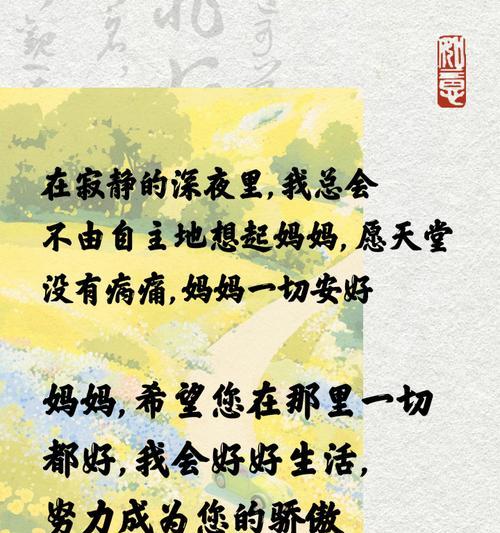 在寂静的深夜里,我总会
不由自主地想起妈妈,愿天堂
没有病痛,妈妈一切安好
妈妈,希望您在那里一切
都好,我会好好生活,
努力成为您的骄傲